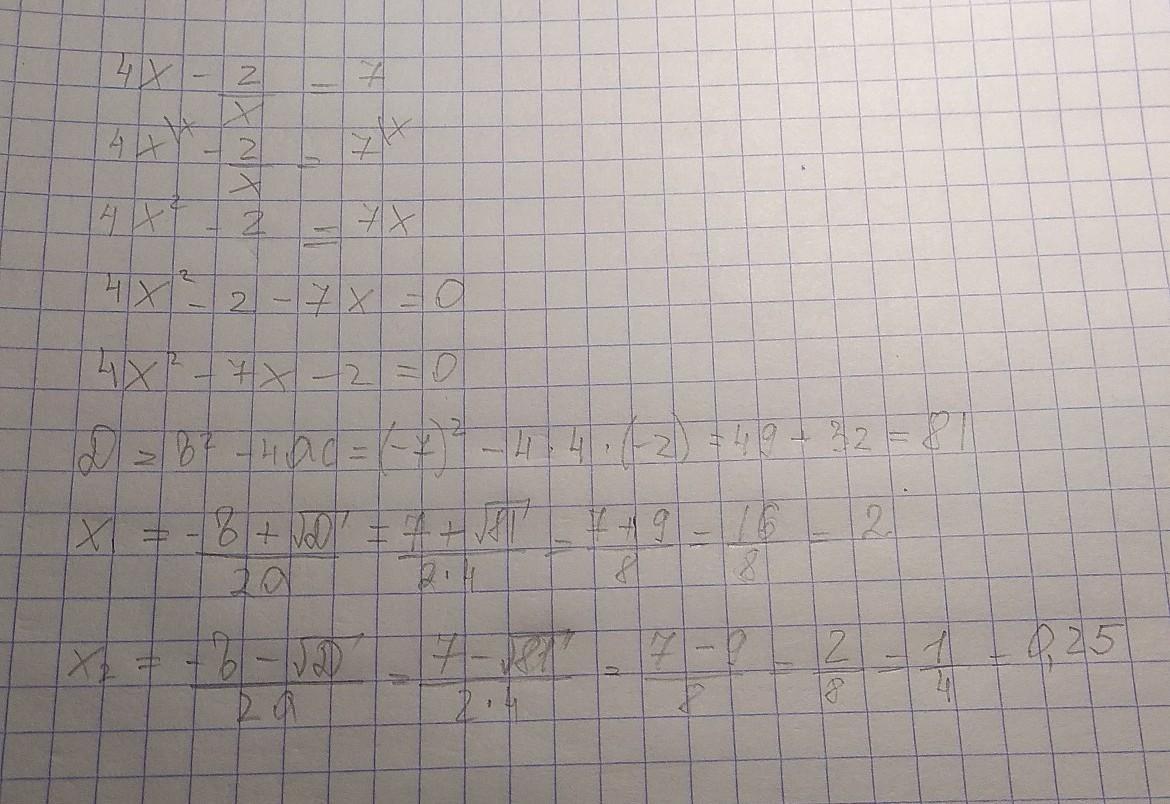 4x - 2/x = 7
4x\x - 2/x = 7\x
4x² - 2 = 7x
4x² - 2 - 7x = 0
4x² - 7x - 2 = 0
D = в² - 4ac = (-7)² - 4 · 4 · (-2) = 49 + 32 = 81
x₁ = (-в + √D)/2a = (7 + √81)/(2·4) = (7 + 9)/8 = 16/8 = 2
x₂ = (-в - √D)/2a = (7 - √81)/(2·4) = (7 - 9)/8 = 2/8 = 1/4 = 0,25